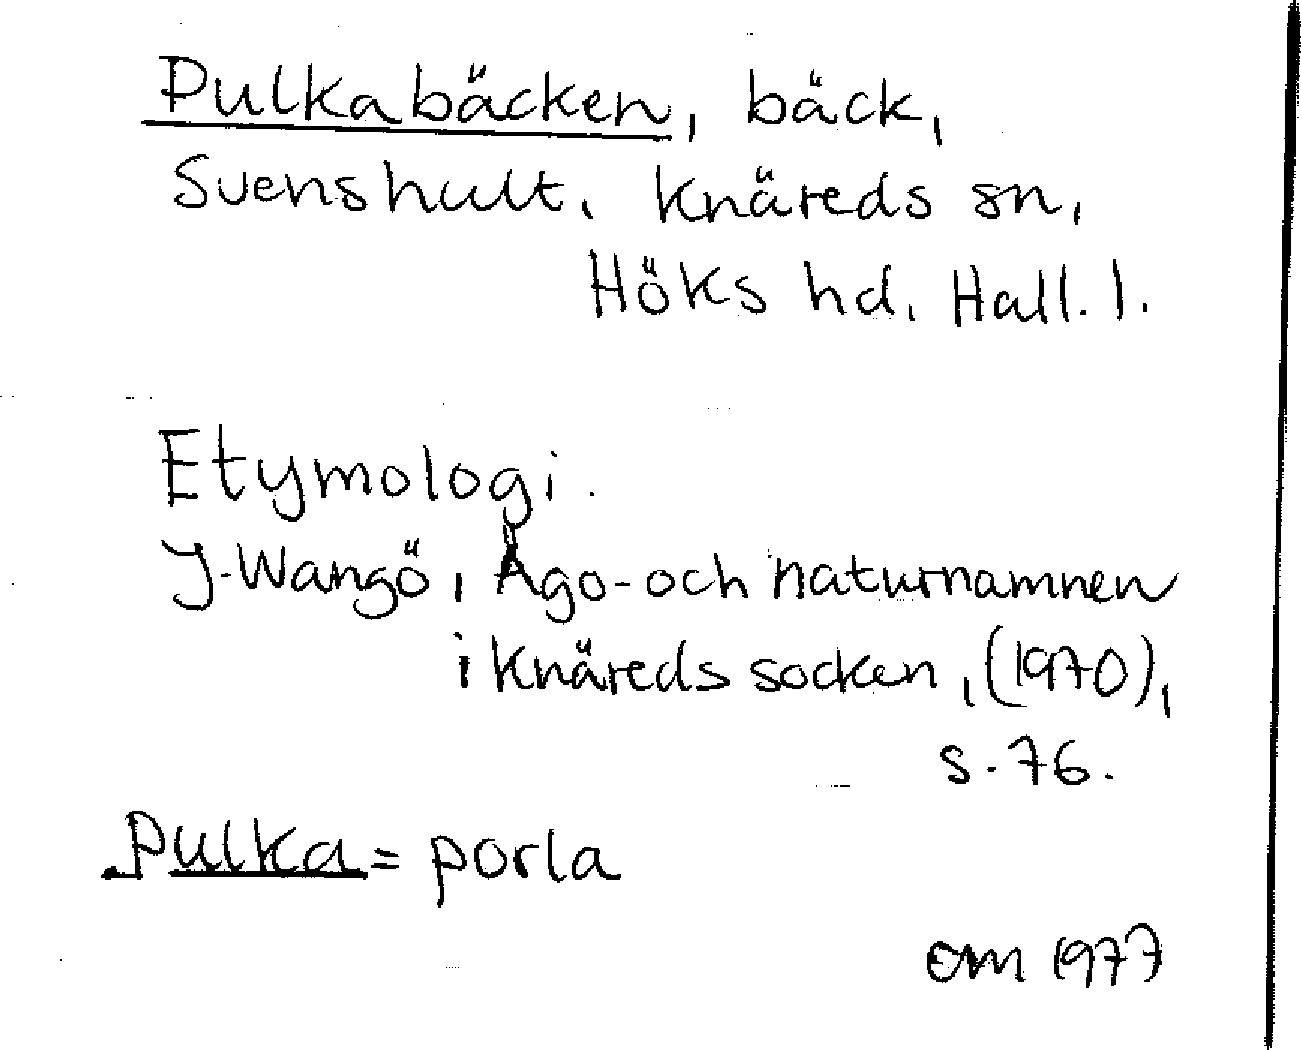 Pulkabäcken, bäck,
Svenshult, Knäreds sn,
Höks hd, Hall. l.
Etymologi.
J. Wangö, Ägo- och naturnamnen
i Knäreds socken, (1970),
s. 76.
Pulka = porla
om 1977